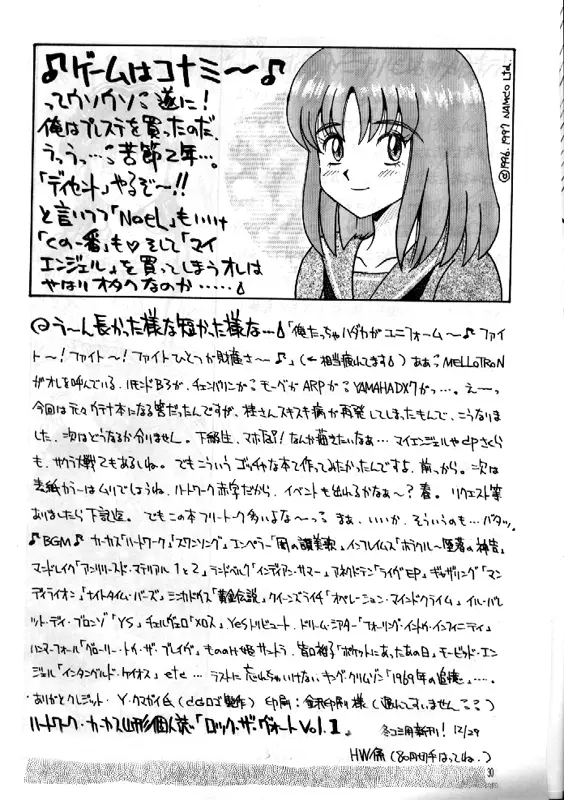 ♪ゲームはコナミ〜♪
ってウソウソ 遂に!
俺はプレステを買ったのだ。
うっうっ…苦節2年…。
「ディセント」やるぞ〜!!
と言いつつ「NOëL」もいいけ
「くの一番」も♡そして「マイ
エンジェル」を買ってしまうオレは
やはりオタクなのか……
©1996. 1997 NAMCO Ltd.
う〜ん長かった様な短かった様な…「俺たっちゃハダカがユニフォーム〜♪ファイ
ト〜!ファイト〜!ファイトひとつが財産さ〜♪」(←相当疲れてます) ああMELLOTRON
がオレを呼んでいる。ハモンドB3が、チェンバリンが モーグが ARPが YAMAHA DX7がっ…。えーっ
今回は元々 本になる筈だったんですが、桂さんスキスキ病が再発してしまったもんで、こうなりま
した。次はどうなるか分りません。下級生、マホ なんか描きたいなぁ…マイエンジェルや さくら
も、サクラ大戦てもあるしね。でもこういうゴッチャな本て作ってみたかったんですよ、前っから。次は
表紙カラーはムリでしょうね、ハートワーク赤字だから、イベントも出れるかなぁ〜?春。リクエスト等
ありましたら下記迄。でもこの本フリートーク多いよな〜っ まぁ、いいか。そういうのも…バタッ。
♪BGM♪カーカス「ハートワーク」「スワンソング」エンペラー「闇の讃美歌」インフレイムス「ボディクル〜 の神告」
マーシドレイク「アンリリースド・マテリアル1と2」ランドベルグ「インディアン・サマー」アネクドテン「ライヴEP」ギャザリング「マン
ディライオン」「ナイトタイム・バーズ」ミカドカイス「黄金伝説」クイーンズライチ「オペレーション・マインドクライム」イル・バレ
ット・ディ・ブロンゾ「YS」チェルヴェロ「メロス」Yesトリビュート.ドリーム・シアター「フォーリング・イントゥ・インフィニティ」
ハンマーフォール「グローリー・トゥ・ザ・ブレイヴ」もののけ姫サントラ.谷口裕子「ポケットにあったあの日」モービッド・エン
ジェル「インタングルド・ケイオス」etc…ラストに忘れちゃいけないキング・クリムゾン「1969年の追憶」….
ありがとクレジット・Y・クマガイ氏( ロゴ製作) 印刷: 印刷様(遅れてすいません)
ハートワーク・カーカス山形個人誌「ロック・ザ・ヴォート Vol.1」 冬コミ用新刊! 12/29
HW係(80円切手はってね。)
30